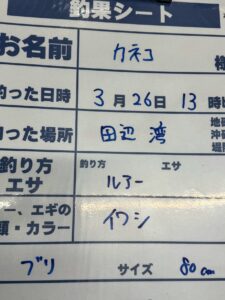 釣果シート
お名前 カネコ 様
釣った日時 3月26日 13時
釣った場所 田辺湾
釣り方 エサ
釣り方 エサ
ルアー
エギの
カラー イワシ
ブリ サイズ 80cm